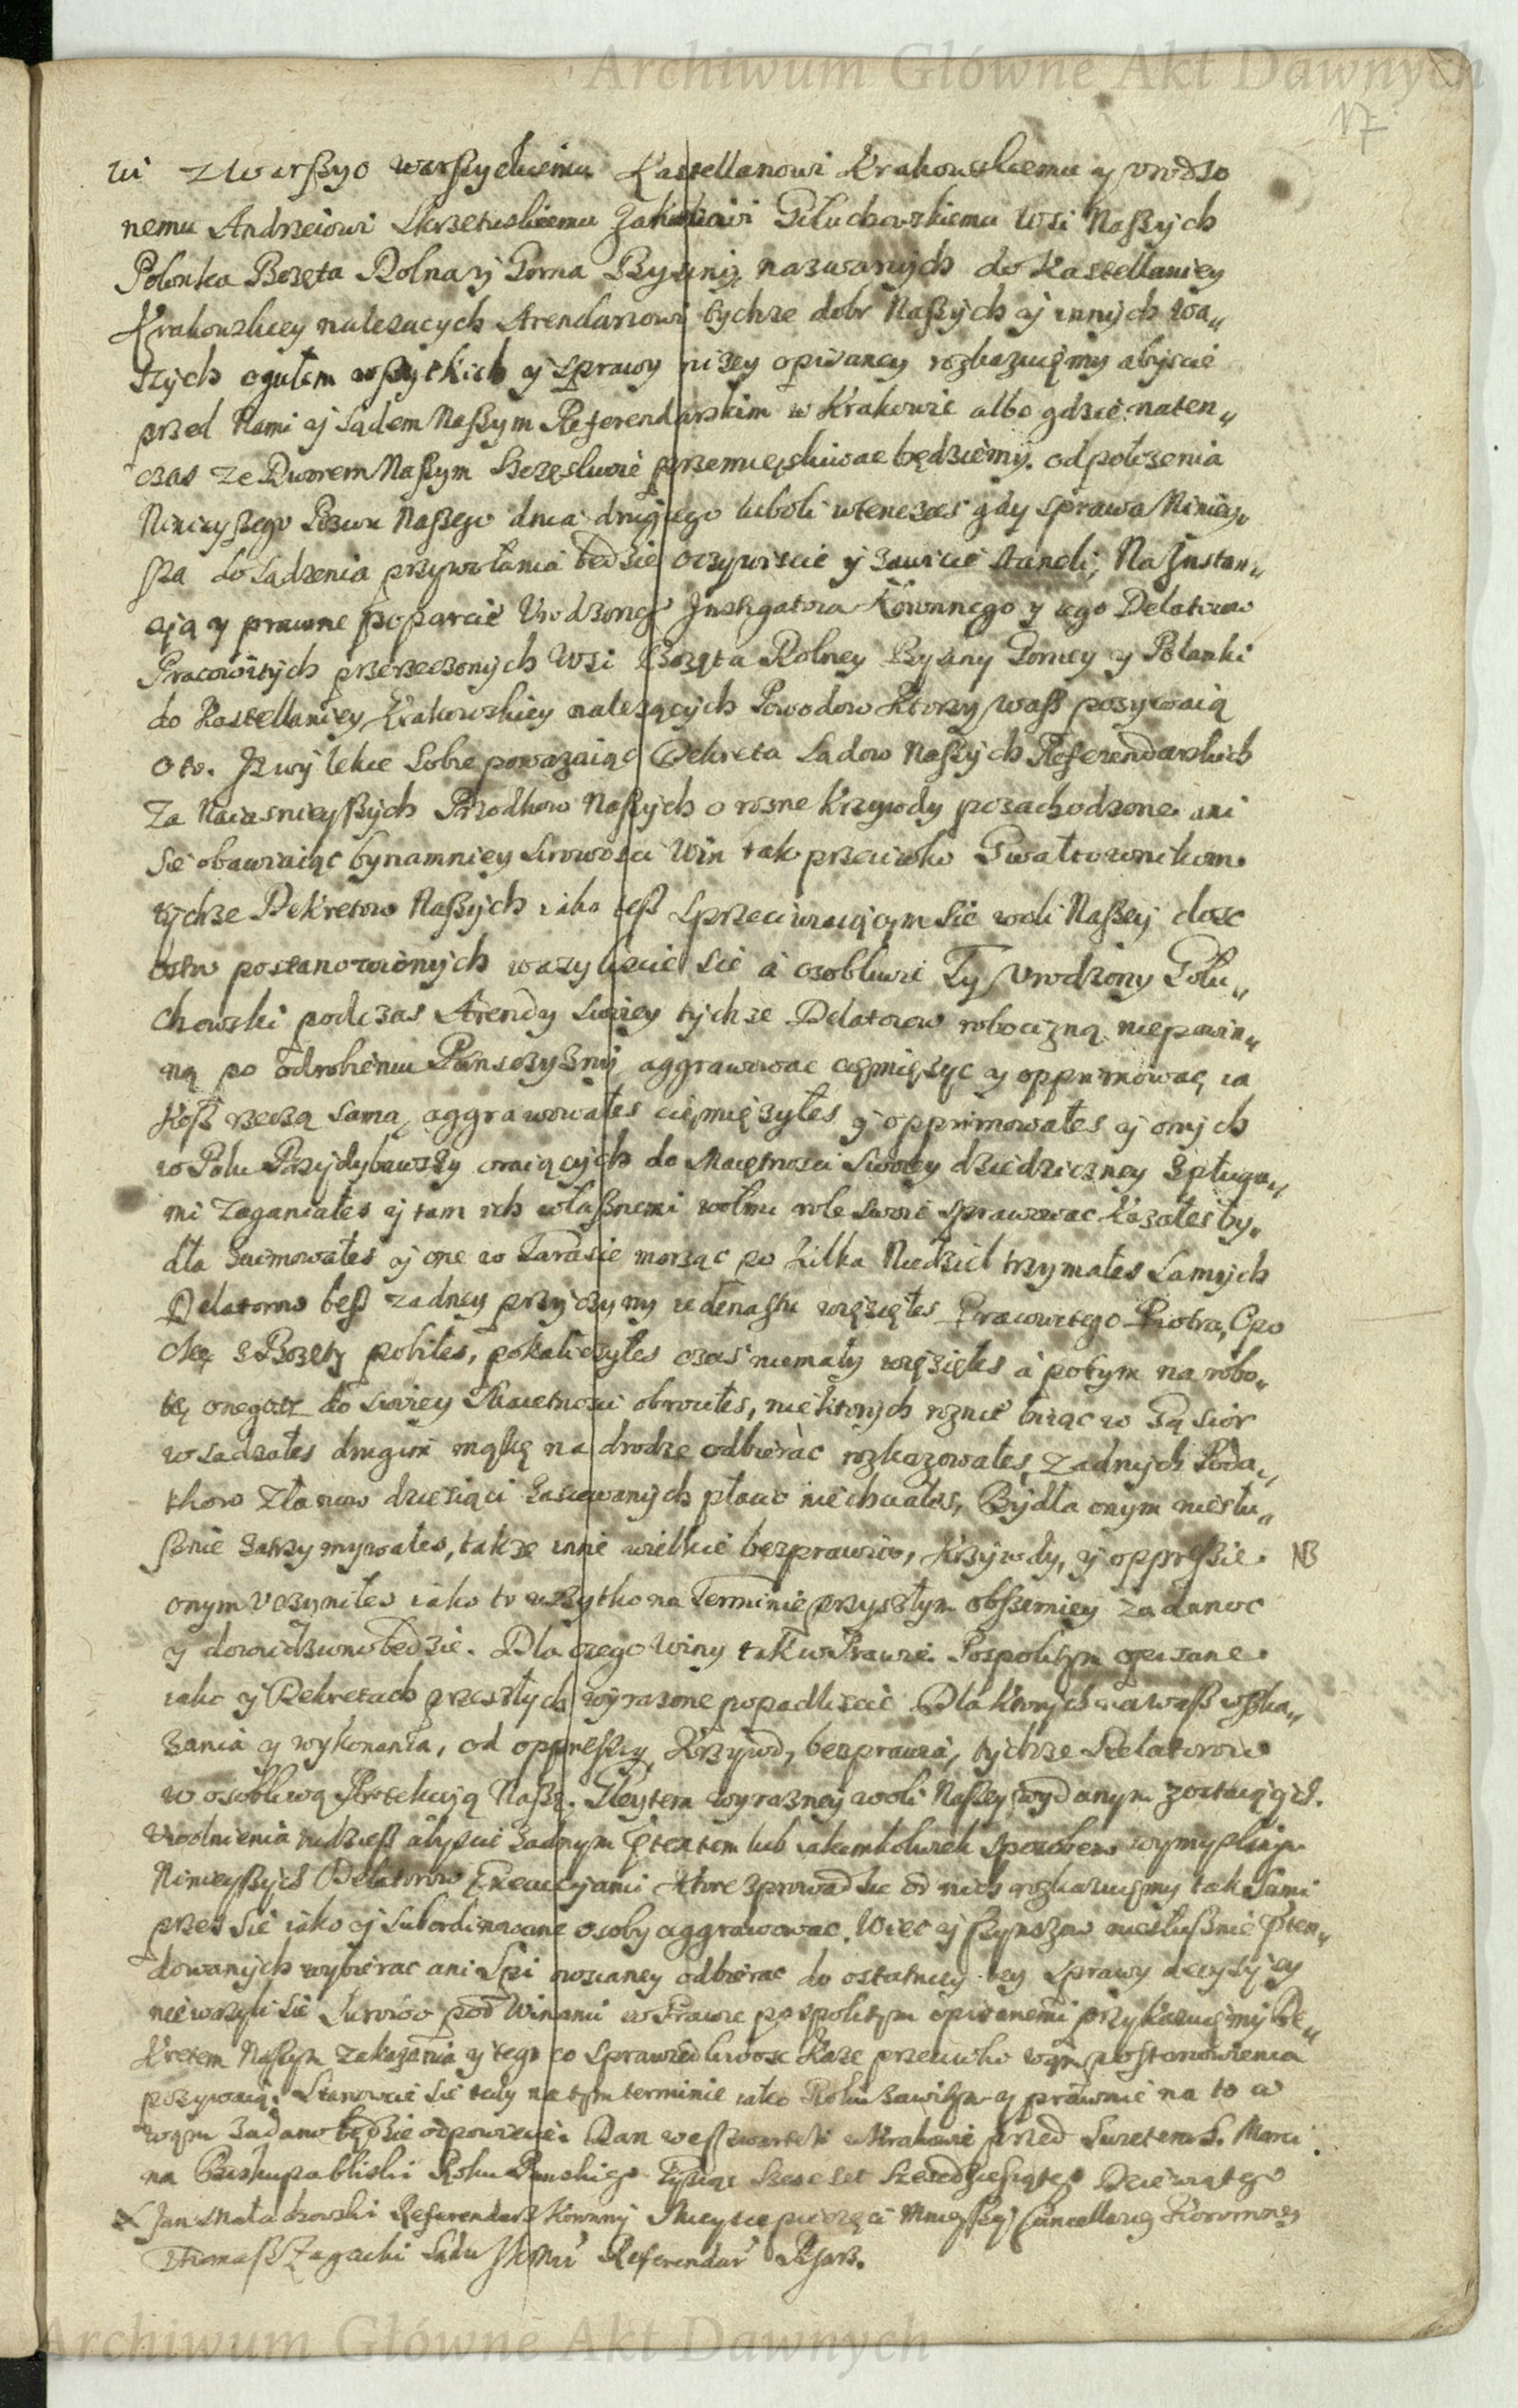 Archiwum Główne Akt Dawnych
17
wi z Warszyc Warszyckiemu Kastellanowi Krakowskiemu y Vrodzo
nemu Andrzeiowi Skrzetuskiemu Głuchowskiemu Wsi Naszych
Polonka Bozęta Dolna y Gorna nazwanych do Kastellaniey
Krakowskiey nalezacych Arendarzowi tychze dobr Naszych y innych wa„
szych ogułem wszytkich y sprawy nizey opisaney rozkazuięmy abyscie
przed Nami y Sądem Naszym Referendarskim w Krakowie albo gdzie naten„
czas ze Dworem Naszym Szczęsliwie przemięskiwac będziemy. od połozenia
Ninieyszego Pozwu Naszego dnia drugiego luboli wtenczas gdy sprawa Niniey„
sza do Sądzenia przywołania będzie oczywiscie y zawicie staneli, Na Instan„
cją y prawne poparcie Vrodzoneg Instigatora Koronnego y iego Delatorow
Pracowitych przerzeczonych Wsi Bozęta Dolney Gorney y Polanki
do Kastellaniey Krakowskiey nalezących Powodow Ktorzy wasz pozywaią
o to. Iz wy lekce Sobie powazaiąc Dekreta Sadow Naszych Referendarskich
za Naiasnieyszych Przodkow Naszych o rozne krzywdy pozachodzone. ani
Się obawiaiąc bynamniey Surowosci Win tak przeciwko Gwałtownikom.
tychze Dekretow Naszych iako tesz Sprzeciwiaiącym Się woli Naszey dosc
ostro postanowionych wazyliscie Się a osobliwie Ty Vrodzony Głu„
chowski podczas Arendy Swoiey tychze Delatorow robocizną niepowin„
ną po odrobieniu Panszczyzny aggrawowac cięmięzyc y opprimowac, ia
kosz rzeczą samą aggrawowałes ciemięzyłes y opprimowałes y onych
w Polu Przydybawszy orzących do Maiętnosci Swoiey dziedziczney z pługa„
mi Zaganiałes y tam ich własznemi wołmi role Swoie sprawowac Kazałes by„
dła zaimowałes y one w Tarasie morząc po kilka Niedziel trzymałes Samych
Delatorow besz zadney przyczyny iedenastu więziełes Pracowitego Piotra, Opo
z Bozęty pobiłes, pokaliczyłes czas niemały więziełes a potym na robo„
tę onegosz do Swoiey Maietnosci obrociłes, niektorych roznie biiąc w Gąsior
wsadzałes drugim mąkę na drodze odbierac rozkazowałes, zadnych Poda„
tkow z Łanow dziesiąci zasiewanych płacic niechciałes, Bydła onym niesłu„
sznie zatrzymywałes, takze inne wielkie bezprawia, krzywdy, y oppressie. NB
onym Vczyniłes iako to wszytko na Terminie przyszłym obszerniey zadanoc
y dowiedziono będzie. Dla czego Winy tak w Prawie Pospolitym opisane.
iako y Dekretach przeszłych wyrazone popadliscie Dla ktorych na wasz wska„
zania y wykonania, od oppressiy Krzywd, bezprawia, tychze Delatorow
w osobliwą Protekcyją Naszą. Gleytem wyrazney woli Naszey wydanym zostaiących.
Vwolnienia abyscie zadnym Ptextem lub iakimkolwiek sposobem wymyslnym
Ninieyszych Delatorow Exekucyjami ktore sprowadzic od nich rozkazuięmy tak Sami
przez Się iako y Subordinowane osoby aggrawowac. Wiec y Czynszow niesłusznie Pten„
dowanych wybierac ani Spi owsianey odbierac do ostatniey tey Sprawy decyzyiey
niewazyli Się Surowo pod Winami w Prawie pospolitym opisanemi przykazuięmy De„
kretem Naszym zakazania y tego co Sprawiedliwosc kaze przeciwko wam postanowienia
pozywaią. Stanowcie się tedy na tym terminie iako Roku zawitym y prawnie na to co
wam zadano będzie odpowiecie. Dan we Czwartek w Krakowie przed Swietem S. Marci
na Biskupa bliski Roku Panskiego Tysiąc Szesc set Szescdziesiątego Dziewiątego
Jan Małachowski Referendarz Koronny Mieysce pieczęci Mnieyszey Cancellariey Koronney
Thomasz Zagacki Sądu Referendar Pisarz.
Archiwum Główne Akt Dawnych